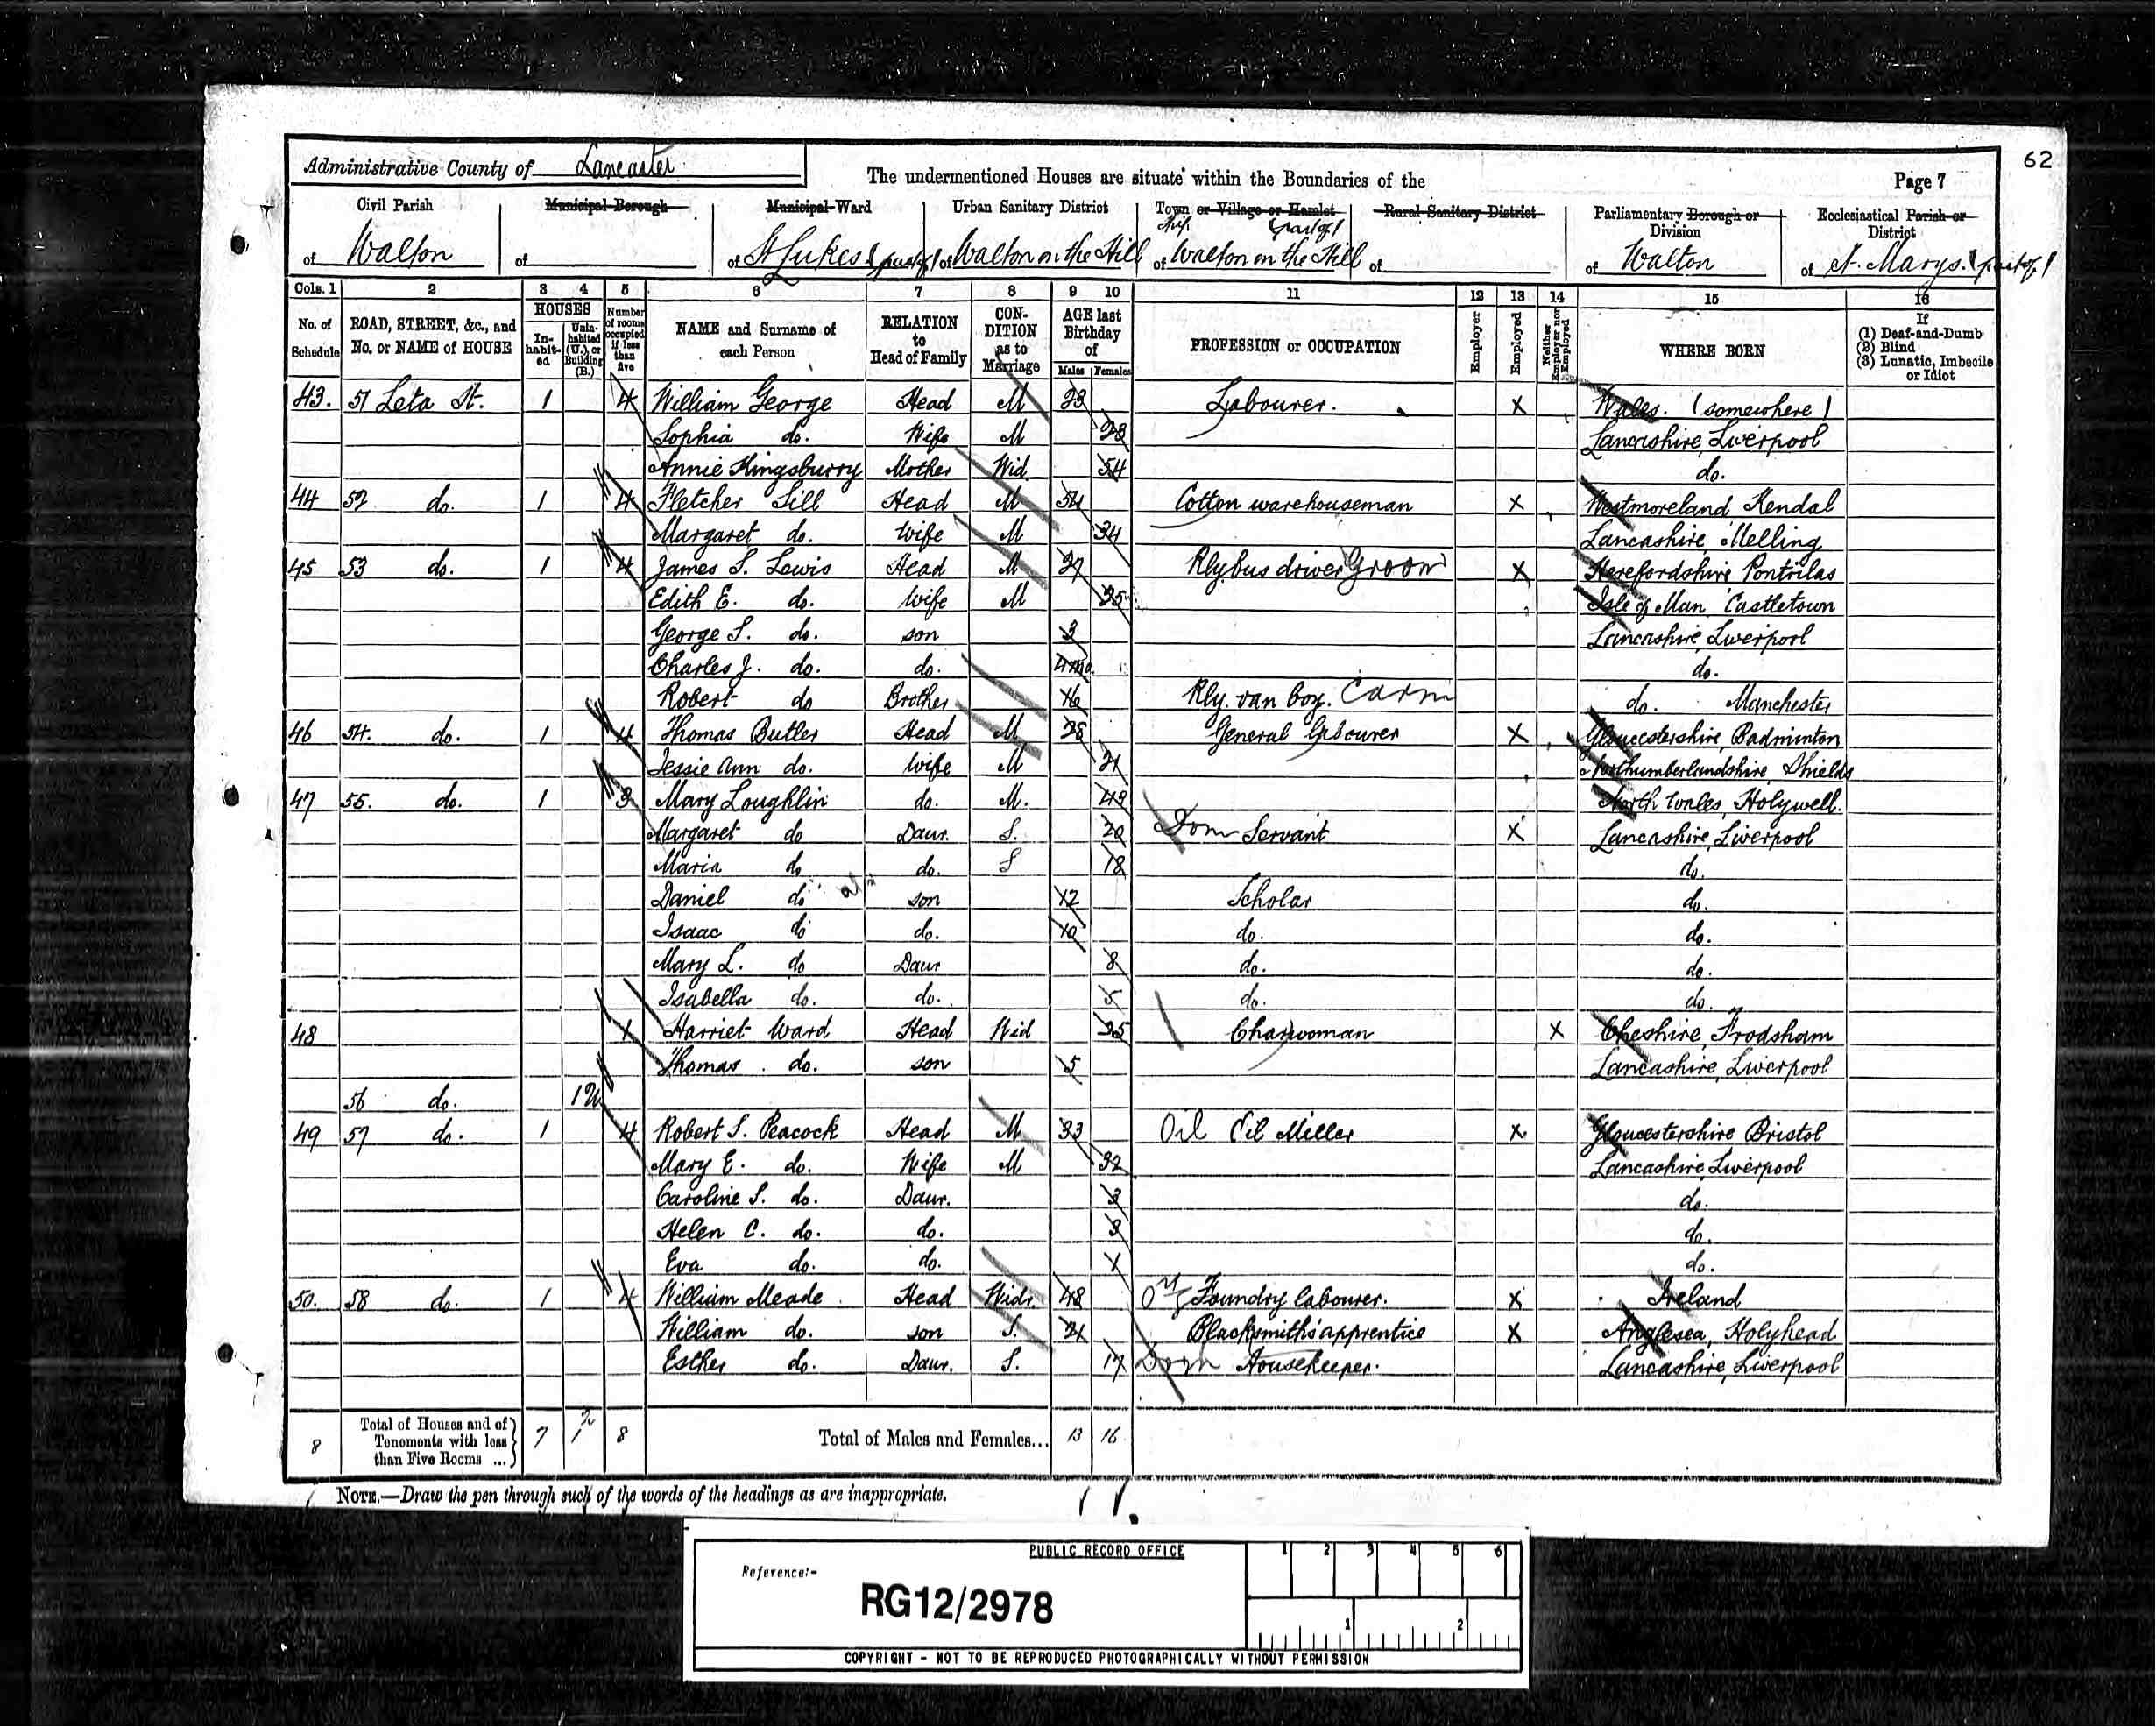 62
Administrative County of Lancaster
The undermentioned Houses are situate within the Boundaries of the
Page 7
Civil Parish of Walton
Municipal Borough of
Municipal Ward of St Lukes (part of)
Urban Sanitary District of Walton on the Hill
Town or Village or Hamlet of Walton on the Hill (part of)
Rural Sanitary District of
Parliamentary Borough or Division of Walton
Ecclesiastical Parish or District of St. Marys. (part of)
Cols. 1 2 3 4 5 6 7 8 9 10 11 12 13 14 15 16
No. of Schedule
ROAD, STREET, &c., and No. or NAME of HOUSE
HOUSES
In-habit-ed
Unin-habited (U.), or Building (B.)
Number of rooms occupied if less than five
NAME and Surname of each Person
RELATION to Head of Family
CON-DITION as to Marriage
AGE last Birthday of
Males Females
PROFESSION or OCCUPATION
Employer
Employed
Neither Employer nor Employed
WHERE BORN
If
(1) Deaf-and-Dumb
(2) Blind
(3) Lunatic, Imbecile or Idiot
43. 51 Leta St. 1 4 William George Head M 23 Labourer. X Wales. (somewhere)
Sophia do. Wife M 23 Lancashire, Liverpool
Annie Kingsburry Mother Wid. 54 do.
44 52 do. 1 4 Fletcher Sill Head M 54 Cotton warehouseman X Westmoreland Kendal
Margaret do. Wife M 34 Lancashire Melling
45 53 do. 1 4 James S. Lewis Head M 27 Rly bus driver Groom X Herefordshire Pontrilas
Edith E. do. Wife M 25 Isle of Man Castletown
George S. do. son 3 Lancashire, Liverpool
Charles J. do. do. 4mo. do.
Robert do Brother 16 Rly. van boy. Carm do. Manchester
46 54. do. 1 4 Thomas Butler Head M 28 General Labourer X Gloucestershire, Badminton
Jessie Ann do. Wife M 21 Northumberlandshire, Shields
47 55. do. 1 3 Mary Loughlin do. M. 43 North Wales, Holywell.
Margaret do Daur. S. 20 Dom Servant X Lancashire, Liverpool
Maria do do. S 18 do.
Daniel do son 12 Scholar do.
Isaac do do. 10 do. do.
Mary L. do Daur 8 do. do.
Isabella do. do. 5 do. do.
48 1 Harriet Ward Head Wid 35 Charwoman X Cheshire, Frodsham
Thomas do. son 5 Lancashire, Liverpool
56 do. 1U
49 57 do. 1 4 Robert S. Peacock Head M 33 Oil Oil Miller X Gloucestershire Bristol
Mary E. do. Wife M 32 Lancashire, Liverpool
Caroline S. do. Daur. 3 do.
Helen C. do. do. 3 do.
Eva do. do. 1 do.
50. 58 do. 1 4 William Meade Head Widr. 48 Foundry labourer. X Ireland
William do. son S. 21 Blacksmith's apprentice X Anglesea, Holyhead
Esther do. Daur. S. 17 Dom Housekeeper. Lancashire, Liverpool
8 Total of Houses and of Tenements with less than Five Rooms ... 7 1 8 Total of Males and Females... 13 16
NOTE.—Draw the pen through such of the words of the headings as are inappropriate.
PUBLIC RECORD OFFICE
1 2 3 4 5 6
Reference:-
RG12/2978
1 2
COPYRIGHT - NOT TO BE REPRODUCED PHOTOGRAPHICALLY WITHOUT PERMISSION